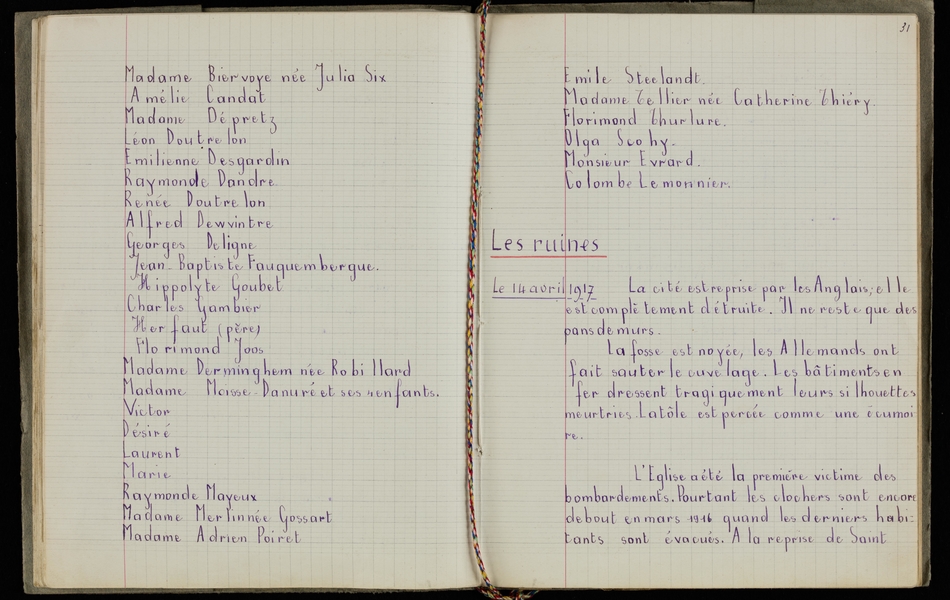 Madame Biervoye née Julia Six
Amélie Candat
Madame Dépretz
Léon Doutrelon
Emilienne Desgardin
Raymonde Dandre
Renée Doutrelon
Alfred Dewvintre
Georges Deligne
Jean-Baptiste Fauquembergue.
Hippolyte Goubet
Charles Gambier
Herfaut (père)
Florimond Joos
Madame Derminghem née Robillard
Madame Moïsse Danuré et ses 4 enfants.
Victor
Désiré
Laurent
Marie
Raymonde Mayeux
Madame Merlin née Gossart
Madame Adrien Poiret
31
Emile Steelandt.
Madame Tellier née Catherine Thiéry.
Florimond Thurlure.
Olga Scohy.
Monsieur Evrard.
Colombe Lemonnier.
Les ruines
Le 14 avril 1917 La cité est reprise par les Anglais; elle
est complètement détruite. Il ne reste que des
pans de murs.
La fosse est noyée, les Allemands ont
fait sauter le cuvelage. Les bâtiments en
fer dressent tragiquement leurs silhouettes
meurtries. La tôle est percée comme une écumoi
re.
L'Eglise a été la première victime des
bombardements. Pourtant les clochers sont encore
debout en mars 1916 quand les derniers habi-
tants sont évacués. A la reprise de Saint